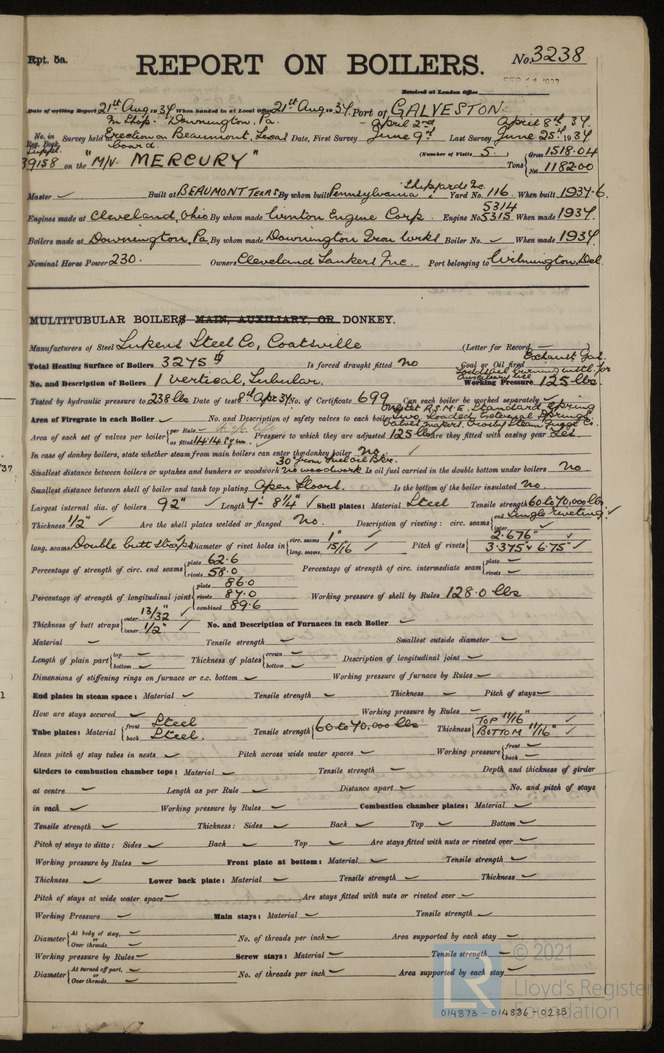 Rpt. 5a.
REPORT ON BOILERS.
No. 3238
Received at London Office
Date of writing Report 21st Aug 1934 When handed in at Local Office 21st Aug 1934 Port of GALVESTON
No. in Reg. Book. Survey held Erection on Beaumont, Texas Date, First Survey June 9th Last Survey June 25th 1934
Downington, Pa. April 2nd April 8th 34
board
39158 on the "M/V. MERCURY" (Number of Visits 5.) Tons Gross 1518.04 Net 1182.00
Master ✓ Built at BEAUMONT TEXAS By whom built Pennsylvania Shipyards Inc Yard No. 116. When built 1934-6
Engines made at Cleveland, Ohio By whom made Winton Engine Corp. Engine No. 5314 5315 When made 1934.
Boilers made at Downington, Pa. By whom made Downington Iron Wrks Boiler No. ✓ When made 1934.
Nominal Horse Power 230. Owners Cleveland Tankers Inc. Port belonging to Wilmington, Del
MULTITUBULAR BOILERS MAIN, AUXILIARY, OR DONKEY.
Manufacturers of Steel Lukens Steel Co, Coatsville (Letter for Record
Total Heating Surface of Boilers 327.5 Is forced draught fitted No Coal or Oil fired Exhaust Gas.
No. and Description of Boilers 1 vertical, Tubular. Working Pressure 125 lbs.
Tested by hydraulic pressure to 238 lbs Date of test 8th Apr 34 No. of Certificate 699 Can each boiler be worked separately ✓
Area of Firegrate in each Boiler ✓ No. and Description of safety valves to each boiler
A.S.M.E. Standard Spring Loaded, External Springs
Area of each set of valves per boiler per Rule as fitted Pressure to which they are adjusted 125 lbs Are they fitted with easing gear Yes
In case of donkey boilers, state whether steam from main boilers can enter the donkey boiler No. ✓
Smallest distance between boilers or uptakes and bunkers or woodwork 30" from fuel oil Bkr. No woodwork Is oil fuel carried in the double bottom under boilers No.
Smallest distance between shell of boiler and tank top plating Open floors. Is the bottom of the boiler insulated No.
Largest internal dia. of boilers 92" ✓ Length 7'-8¼" ✓ Shell plates: Material Steel Tensile strength 60 to 70,000 lbs
Thickness 1/2" ✓ Are the shell plates welded or flanged No. Description of riveting: circ. seams end Single riveting ✓ inter.
long. seams Double butt straps Diameter of rivet holes in circ. seams 1" ✓ long. seams 15/16 ✓ Pitch of rivets 2.676" ✓ 3.375 & 6.75" ✓
Percentage of strength of circ. end seams plate 62.6 rivets 58.0 Percentage of strength of circ. intermediate seam plate ✓ rivets ✓
Percentage of strength of longitudinal joint plate 86.0 rivets 87.0 combined 89.6 Working pressure of shell by Rules 128.0 lbs
Thickness of butt straps outer 13/32" ✓ inner 1/2" ✓ No. and Description of Furnaces in each Boiler ✓
Material ✓ Tensile strength ✓ Smallest outside diameter ✓
Length of plain part top ✓ bottom ✓ Thickness of plates crown ✓ bottom ✓ Description of longitudinal joint ✓
Dimensions of stiffening rings on furnace or c.c. bottom ✓ Working pressure of furnace by Rules ✓
End plates in steam space: Material ✓ Tensile strength ✓ Thickness ✓ Pitch of stays ✓
How are stays secured ✓ Working pressure by Rules ✓
Tube plates: Material front Steel back Steel. Tensile strength 60 to 70,000 lbs Thickness TOP 11/16" ✓ BOTTOM 11/16" ✓
Mean pitch of stay tubes in nests ✓ Pitch across wide water spaces ✓ Working pressure front ✓ back ✓
Girders to combustion chamber tops: Material ✓ Tensile strength ✓ Depth and thickness of girder
at centre ✓ Length as per Rule ✓ Distance apart ✓ No. and pitch of stays
in each ✓ Working pressure by Rules ✓ Combustion chamber plates: Material ✓
Tensile strength ✓ Thickness: Sides ✓ Back ✓ Top ✓ Bottom ✓
Pitch of stays to ditto: Sides ✓ Back ✓ Top ✓ Are stays fitted with nuts or riveted over ✓
Working pressure by Rules ✓ Front plate at bottom: Material ✓ Tensile strength ✓
Thickness ✓ Lower back plate: Material ✓ Tensile strength ✓ Thickness ✓
Pitch of stays at wide water space ✓ Are stays fitted with nuts or riveted over ✓
Working Pressure ✓ Main stays: Material ✓ Tensile strength ✓
Diameter At body of stay, or Over threads ✓ No. of threads per inch ✓ Area supported by each stay ✓
Working pressure by Rules ✓ Screw stays: Material ✓ Tensile strength ✓
Diameter At turned off part, or Over threads ✓ No. of threads per inch ✓ Area supported by each stay ✓
© 2021
LR Lloyd's Register Foundation
014873 - 014886 - 0233